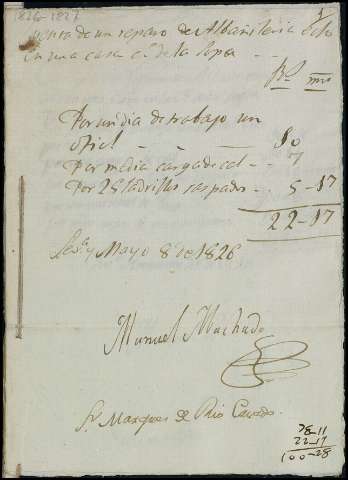 1826-1827
cuenta de un reparo de Albañileria Echo
en una casa c.e de la Sopa
Rs mrs
Por un dia de trabajo un
ofiсl - - 10
Por media carga de cal - - 7
Por 25 ladrillos raspados - - 5-17
22-17
Sev.a y Mayo 8 de 1826
Manuel Machado
Sr Marques de Rio
78-11
22-17
100-28